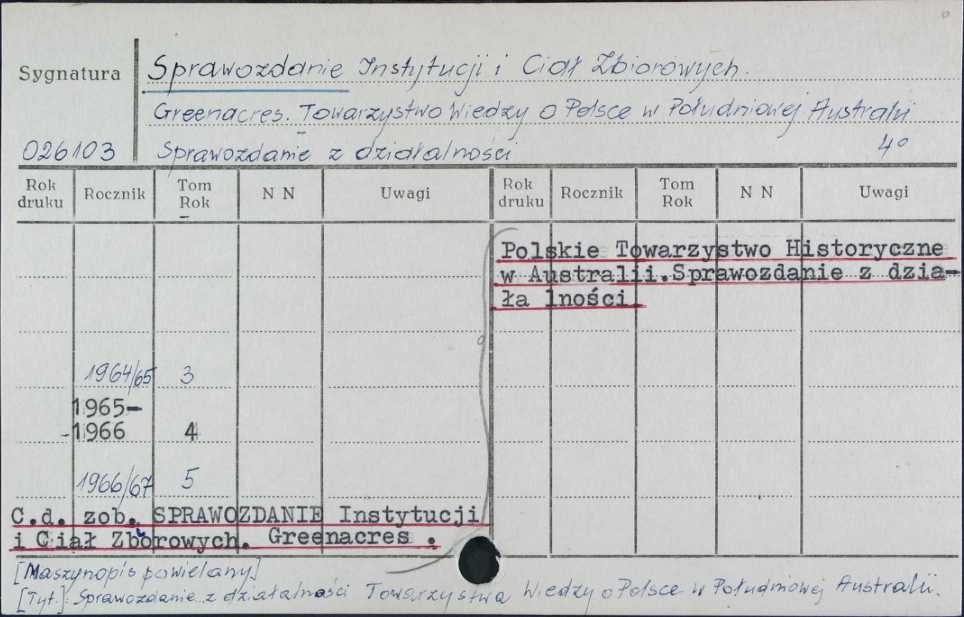 Sygnatura
Sprawozdanie Instytucji i Ciał Zbiorowych.
Greenacres. Towarzystwo Wiedzy o Polsce w Południowej Australii
026103 Sprawozdanie z działalności 4°
Rok druku Rocznik Tom Rok N N Uwagi Rok druku Rocznik Tom Rok N N Uwagi
Polskie Towarzystwo Historyczne
w Australii.Sprawozdanie z dzia-
ła lności
1964/65 3
1965-
-1966 4
1966/67 5
C.d. zob. SPRAWOZDANIE Instytucji
i Ciał Zborowych. Greenacres .
[Maszynopis powielany]
[Tyt.]: Sprawozdanie z działalności Towarzystwa Wiedzy o Polsce w Południowej Australii.